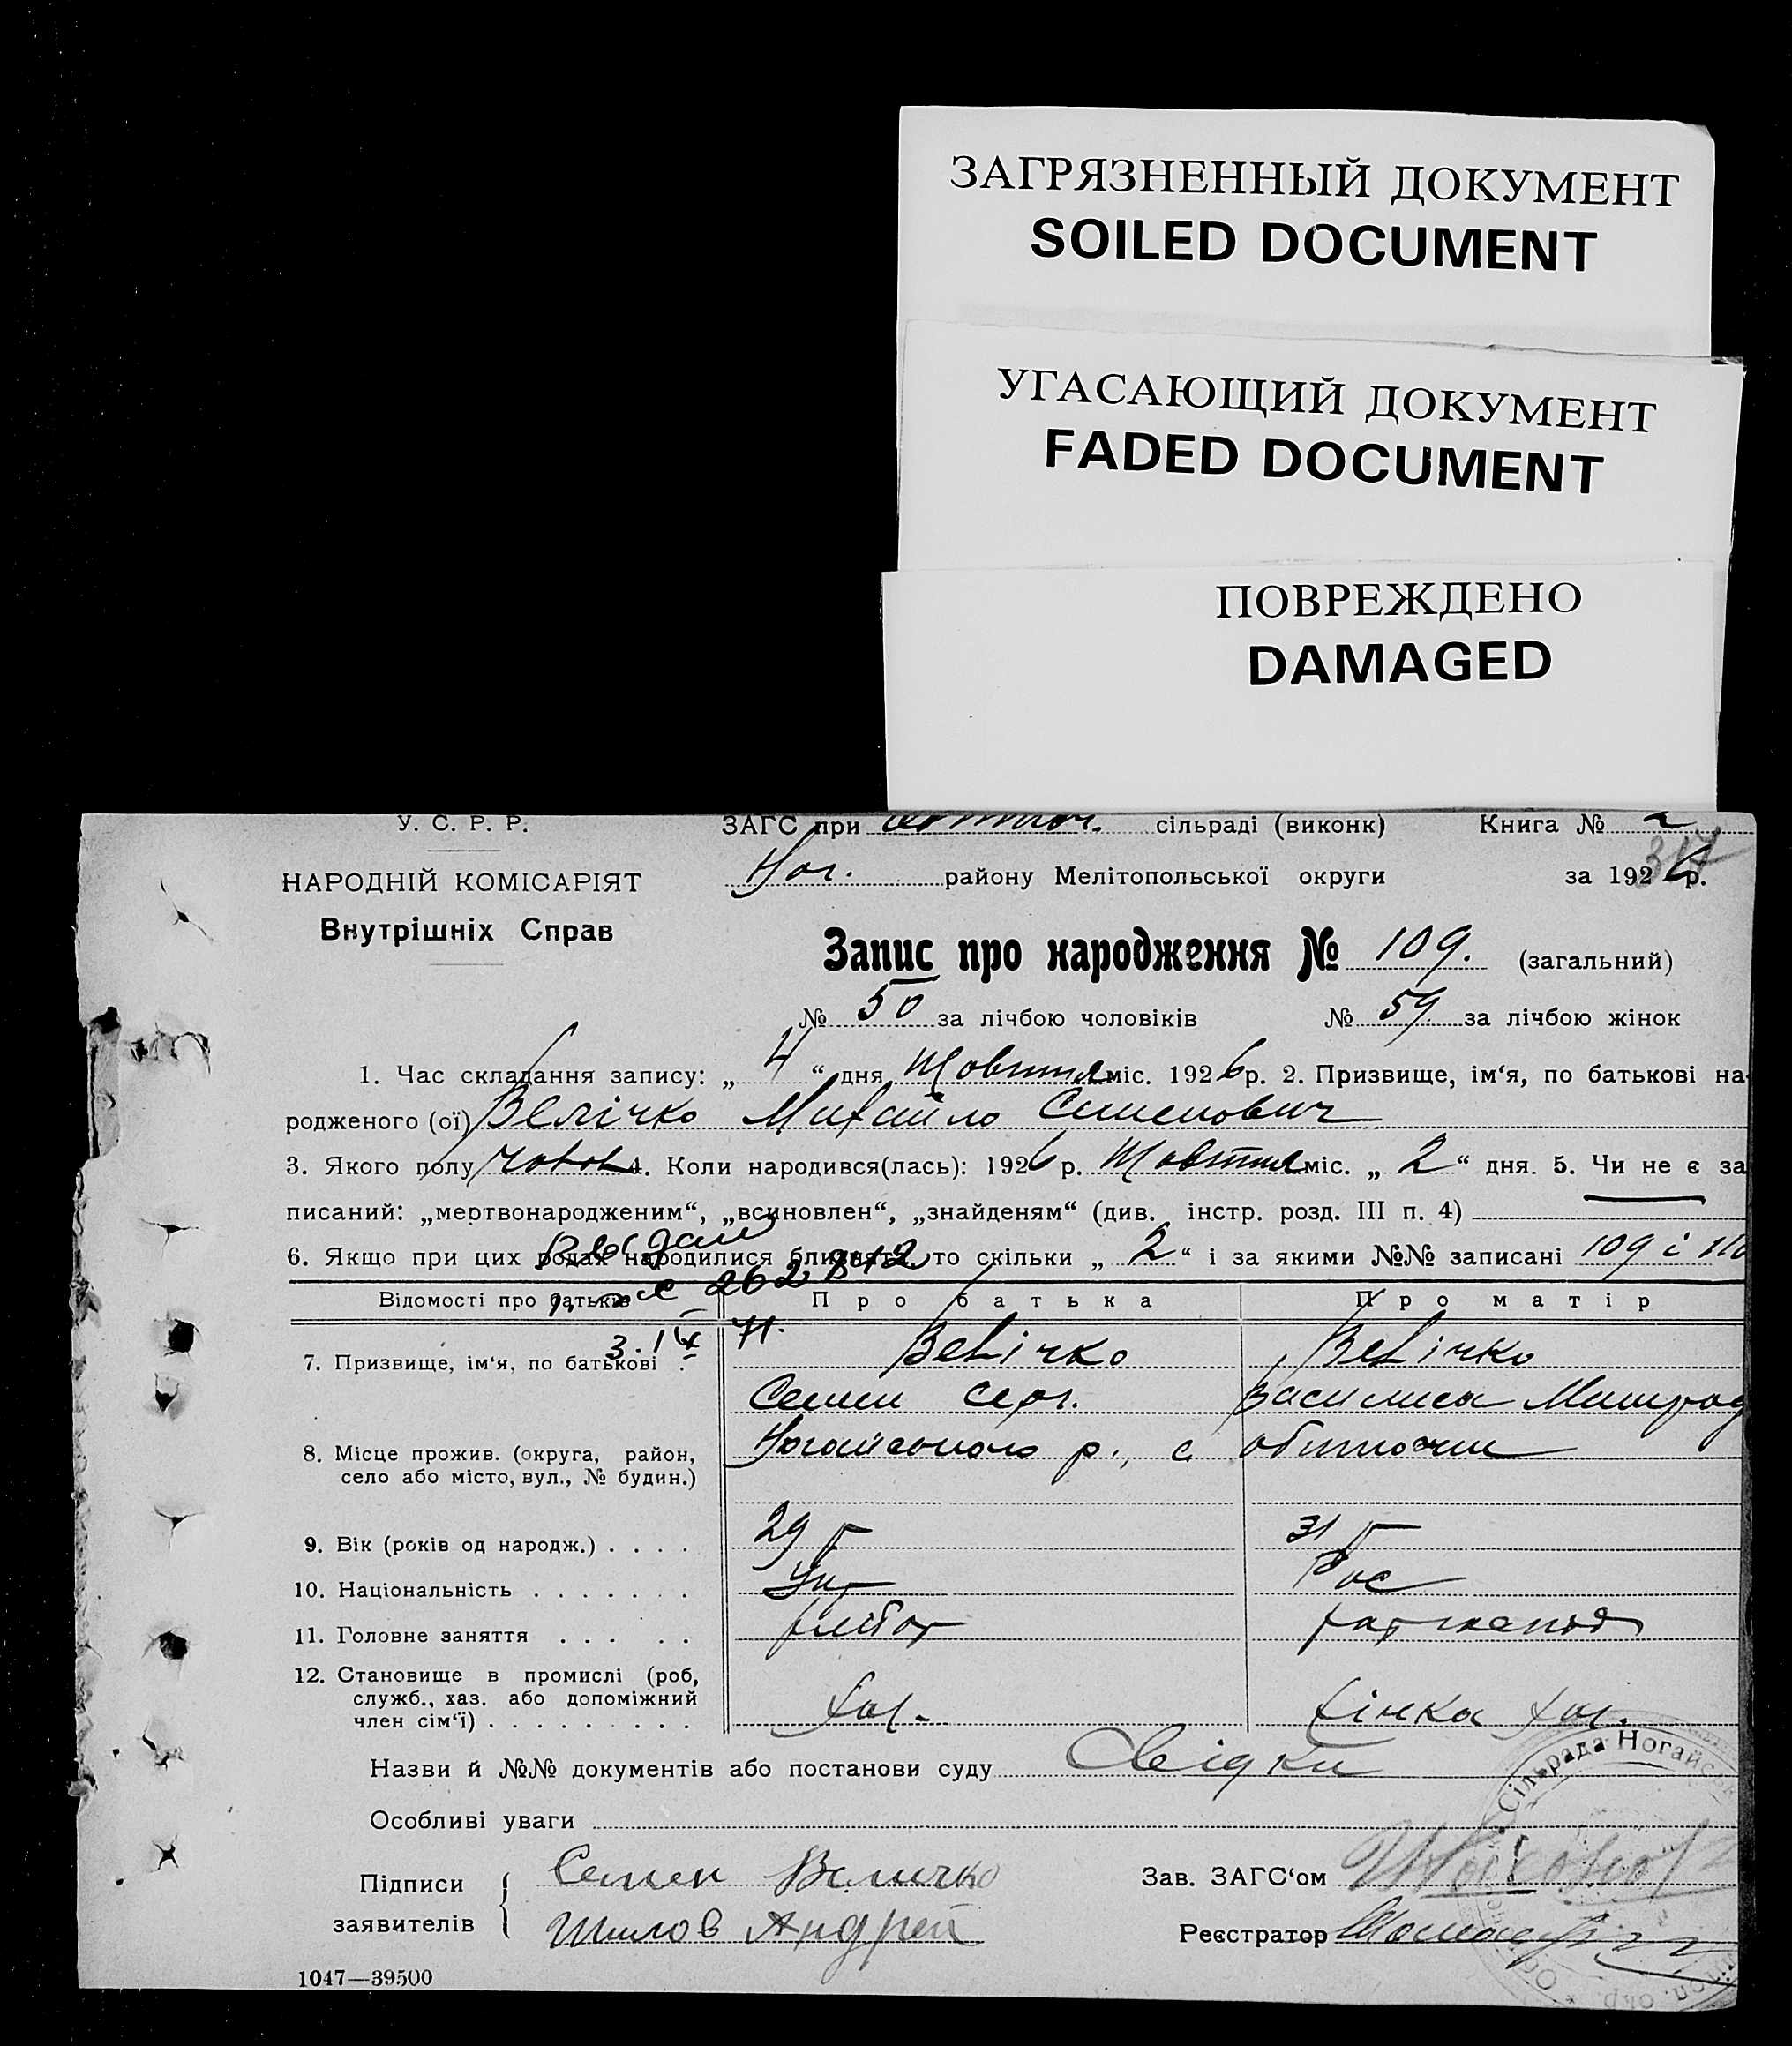 ЗАГРЯЗНЕННЫЙ ДОКУМЕНТ
SOILED DOCUMENT
УГАСАЮЩИЙ ДОКУМЕНТ
FADED DOCUMENT
ПОВРЕЖДЕНО
DAMAGED
У. С. Р. Р.
ЗАГС при сільраді (виконк) Книга № 2
Ног. району Мелітопольської округи за 1926 р.
НАРОДНІЙ КОМІСАРІЯТ
Внутрішніх Справ
Запис про народження № 109. (загальний)
№ 50 за лічбою чоловіків № 59 за лічбою жінок
1. Час складання запису: „ 4 “ дня Жовтня міс. 1926 р. 2. Призвище, ім‘я, по батькові на-
родженого (ої) Велічко Михайло Семенович
3. Якого полу чолов 4. Коли народився(лась): 1926 р. Жовтня міс. „ 2 “ дня. 5. Чи не є за
писаний: „мертвонародженим“, „всиновлен“, „знайденям“ (див. інстр. розд. III п. 4)
6. Якщо при цих родах народилися близнята, то скільки „ 2 “ і за якими №№ записані 109 і 110
Відомості про батьків Про батька Про матір
7. Призвище, ім‘я, по батькові Велічко Велічко
Семен Серг. Василиса
8. Місце прожив. (округа, район, Ногайського р., с Обиточне
село або місто, вул., № будин.)
9. Вік (років од народж.) . . . . 29 р 31 р
10. Національність . . . . . . . Укр Рос
11. Головне заняття . . . . . хлібор
12. Становище в промислі (роб,
служб., хаз. або допоміжний
член сім‘ї) . . . . . . . . . хаз. жінка хаз.
Назви й №№ документів або постанови суду Свідки
Особливі уваги
Підписи Семен Величко Зав. ЗАГС‘ом
заявителів Шилов Андрей Реєстратор
Сільрада Ногайськ
1047—39500